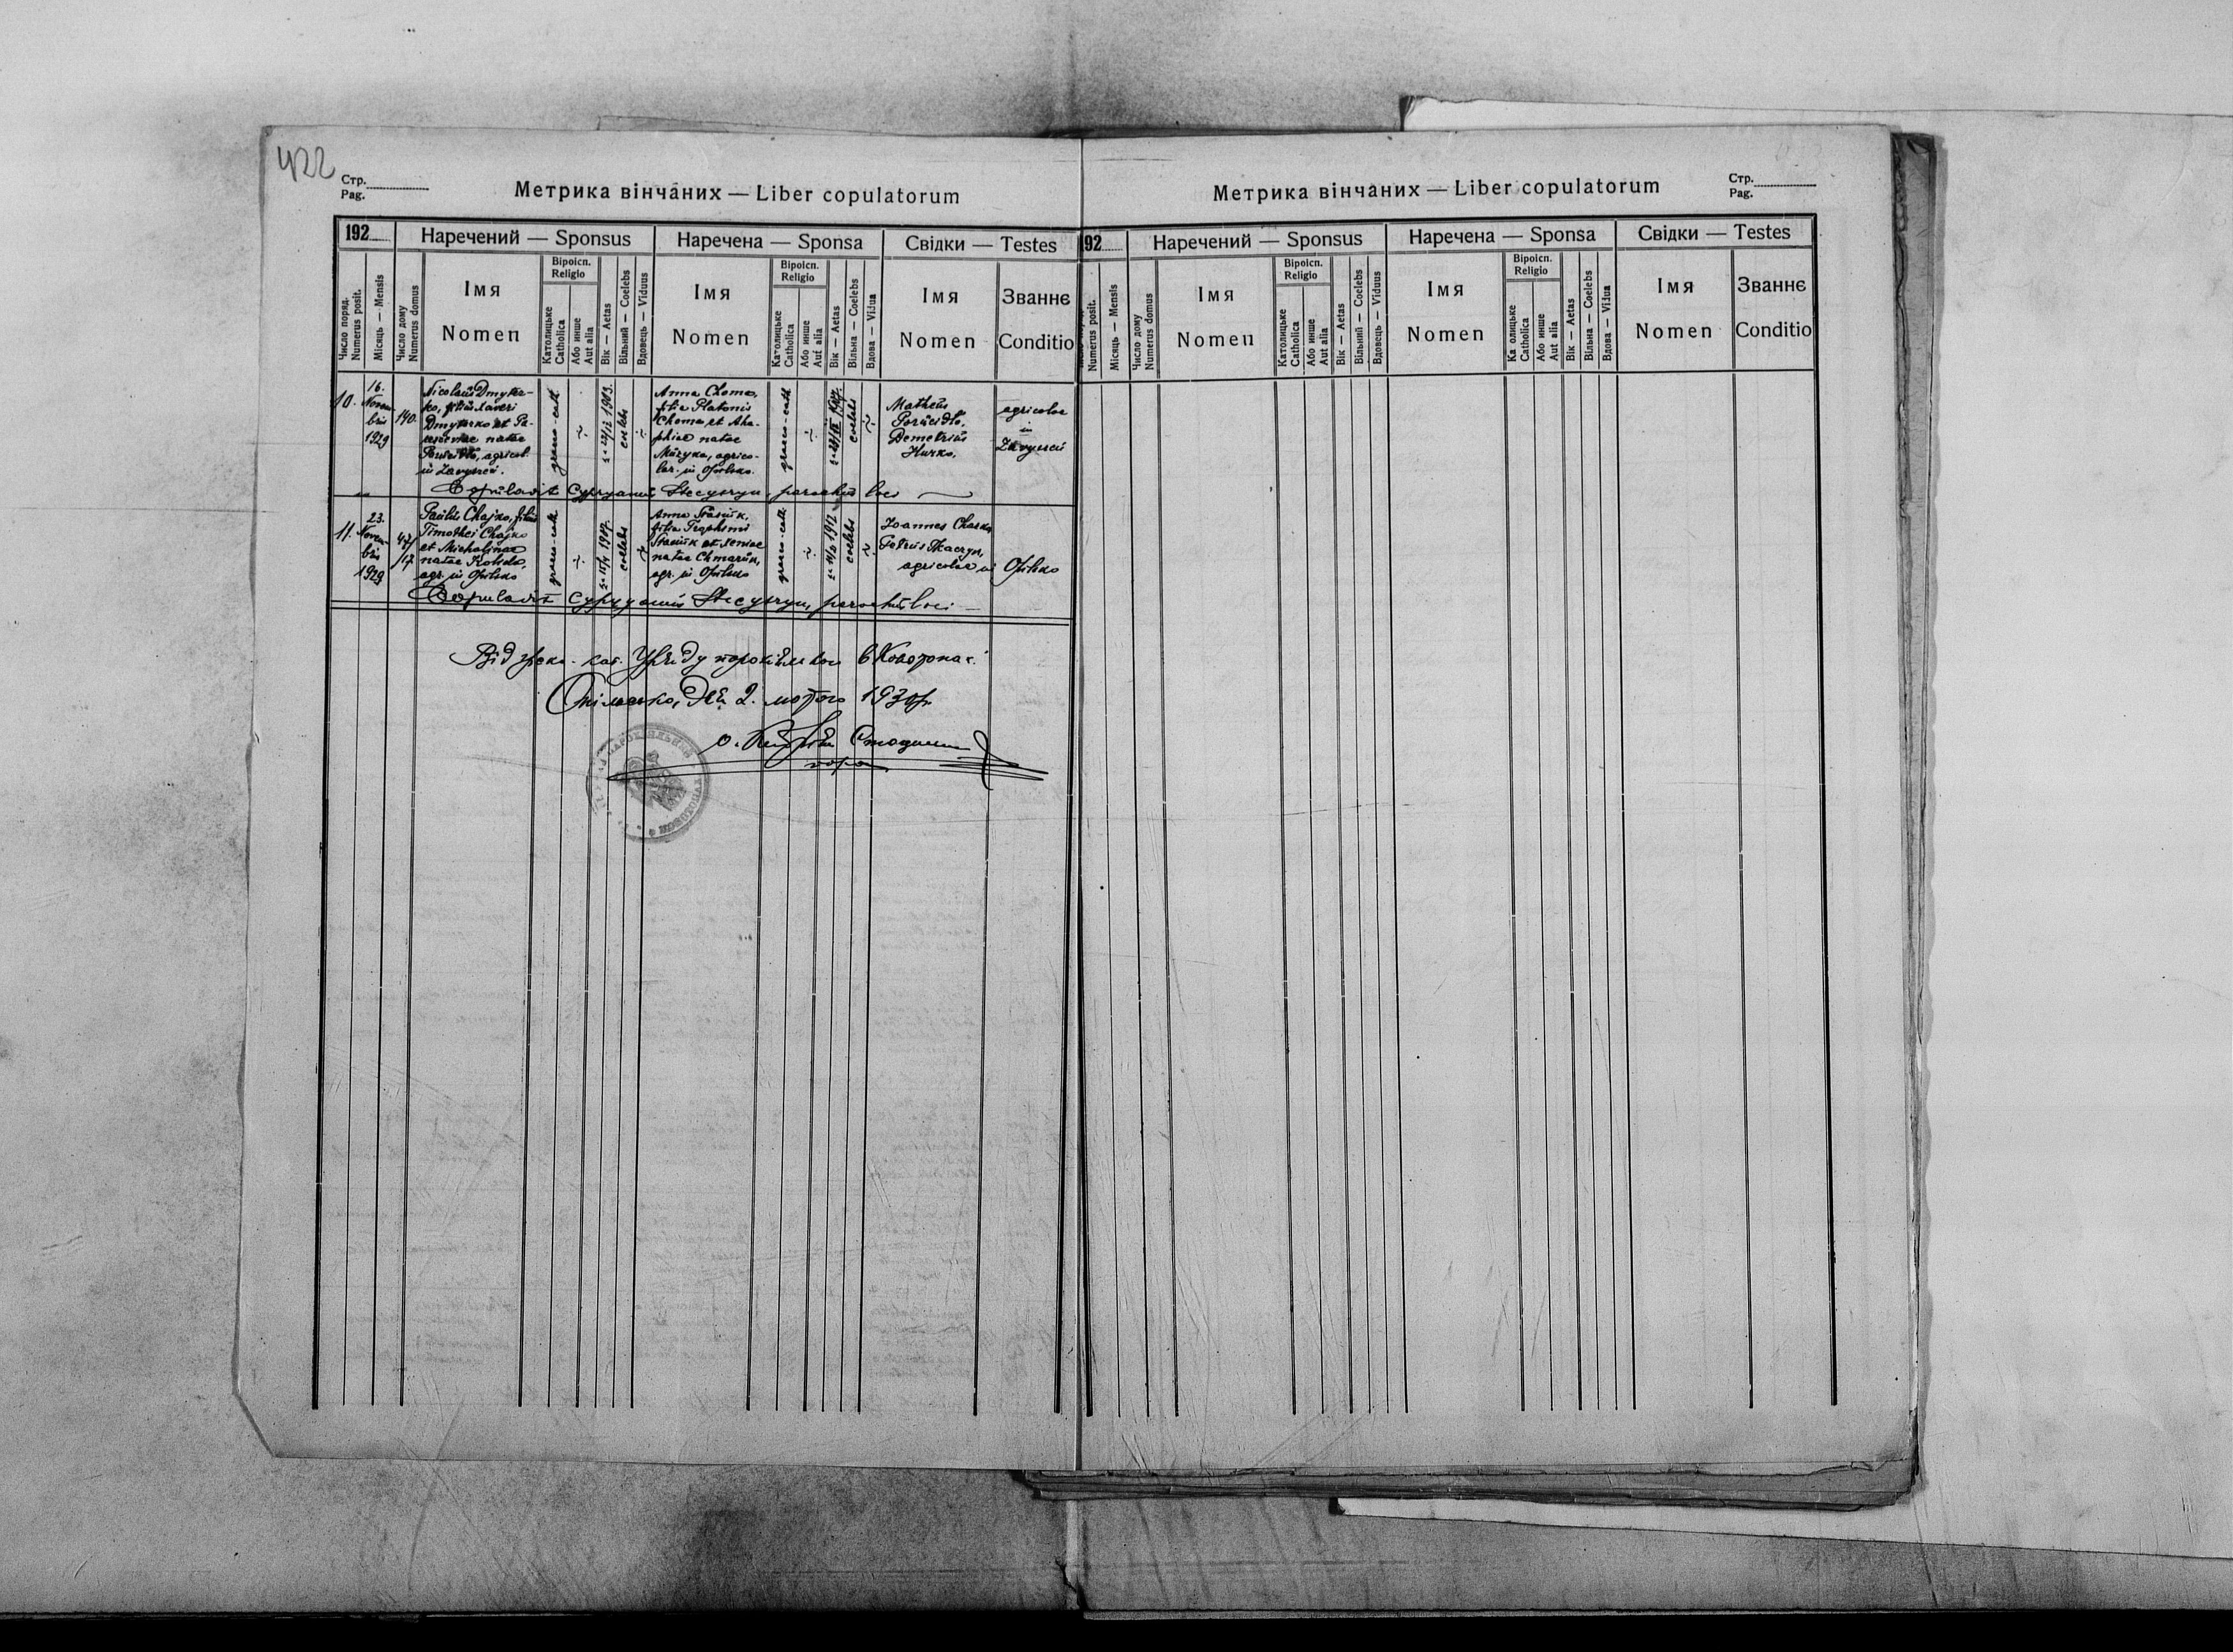 422
Стр.
Pag.
Метрика вінчаних — Liber copulatorum
192
Наречений — Sponsus
Наречена — Sponsa
Свідки — Testes
Число поряд.
Numerus posit.
Місяць — Mensis
Число дому
Numerus domus
Імя
Nomen
Віроісп.
Religio
Католицьке
Catholica
Або инше
Aut alia
Вік — Aetas
Вільний — Coelebs
Вдовець — Viduus
Імя
Nomen
Віроісп.
Religio
Католицьке
Catholica
Або инше
Aut alia
Вік — Aetas
Вільна — Coelebs
Вдова — Vidua
Імя
Nomen
Званнє
Conditio
10.
16.
Novem
bris
1929
140.
Nicolaus Dmyter-
ko, filius Xaveri
Dmyterko et Pa-
natae
agricol.
in Zavyseń.
graeco-cath
1903.
coelebs
Anna Choma,
filia Platonis
Choma et Aha-
phiae natae
Muzyka, agrico-
lar. in Opilsko.
graeco-cath
coelebs
Matheus
Demetrius
Hurko,
agricolae
in
Zavyseń
Copulavit Cypryanus Stecyszyn, parochus loci
11.
23.
Novem-
bris
1929
47/
/17
Basilius Chajko, filius
Timothei Chajko
et Michalinae
natae
agr. in Opilsko
graeco-cath
1907.
coelebs
Anna Stasiuk,
filia Trophimi
Stasiuk et Xeniae
natae Chmaruk,
agr. in Opilsko
graeco-cath
1912
coelebs
Joannes
Petrus
agricolae in Opilsko
Copulavit Cypryanus Stecyszyn, parochus loci
Від греко-кат. Уряду парохіяльного
Опільсько, дня 2. лютого 1930 р.
о.
парох
Метрика вінчаних — Liber copulatorum
Стр.
Pag.
92
Наречений — Sponsus
Наречена — Sponsa
Свідки — Testes
Numerus posit.
Місяць — Mensis
Число дому
Numerus domus
Імя
Nomen
Віроісп.
Religio
Католицьке
Catholica
Або инше
Aut alia
Вік — Aetas
Вільний — Coelebs
Вдовець — Viduus
Імя
Nomen
Віроісп.
Religio
Ка олицьке
Catholica
Або инше
Aut alia
Вік — Aetas
Вільна — Coelebs
Вдова — Vidua
Імя
Nomen
Званнє
Conditio